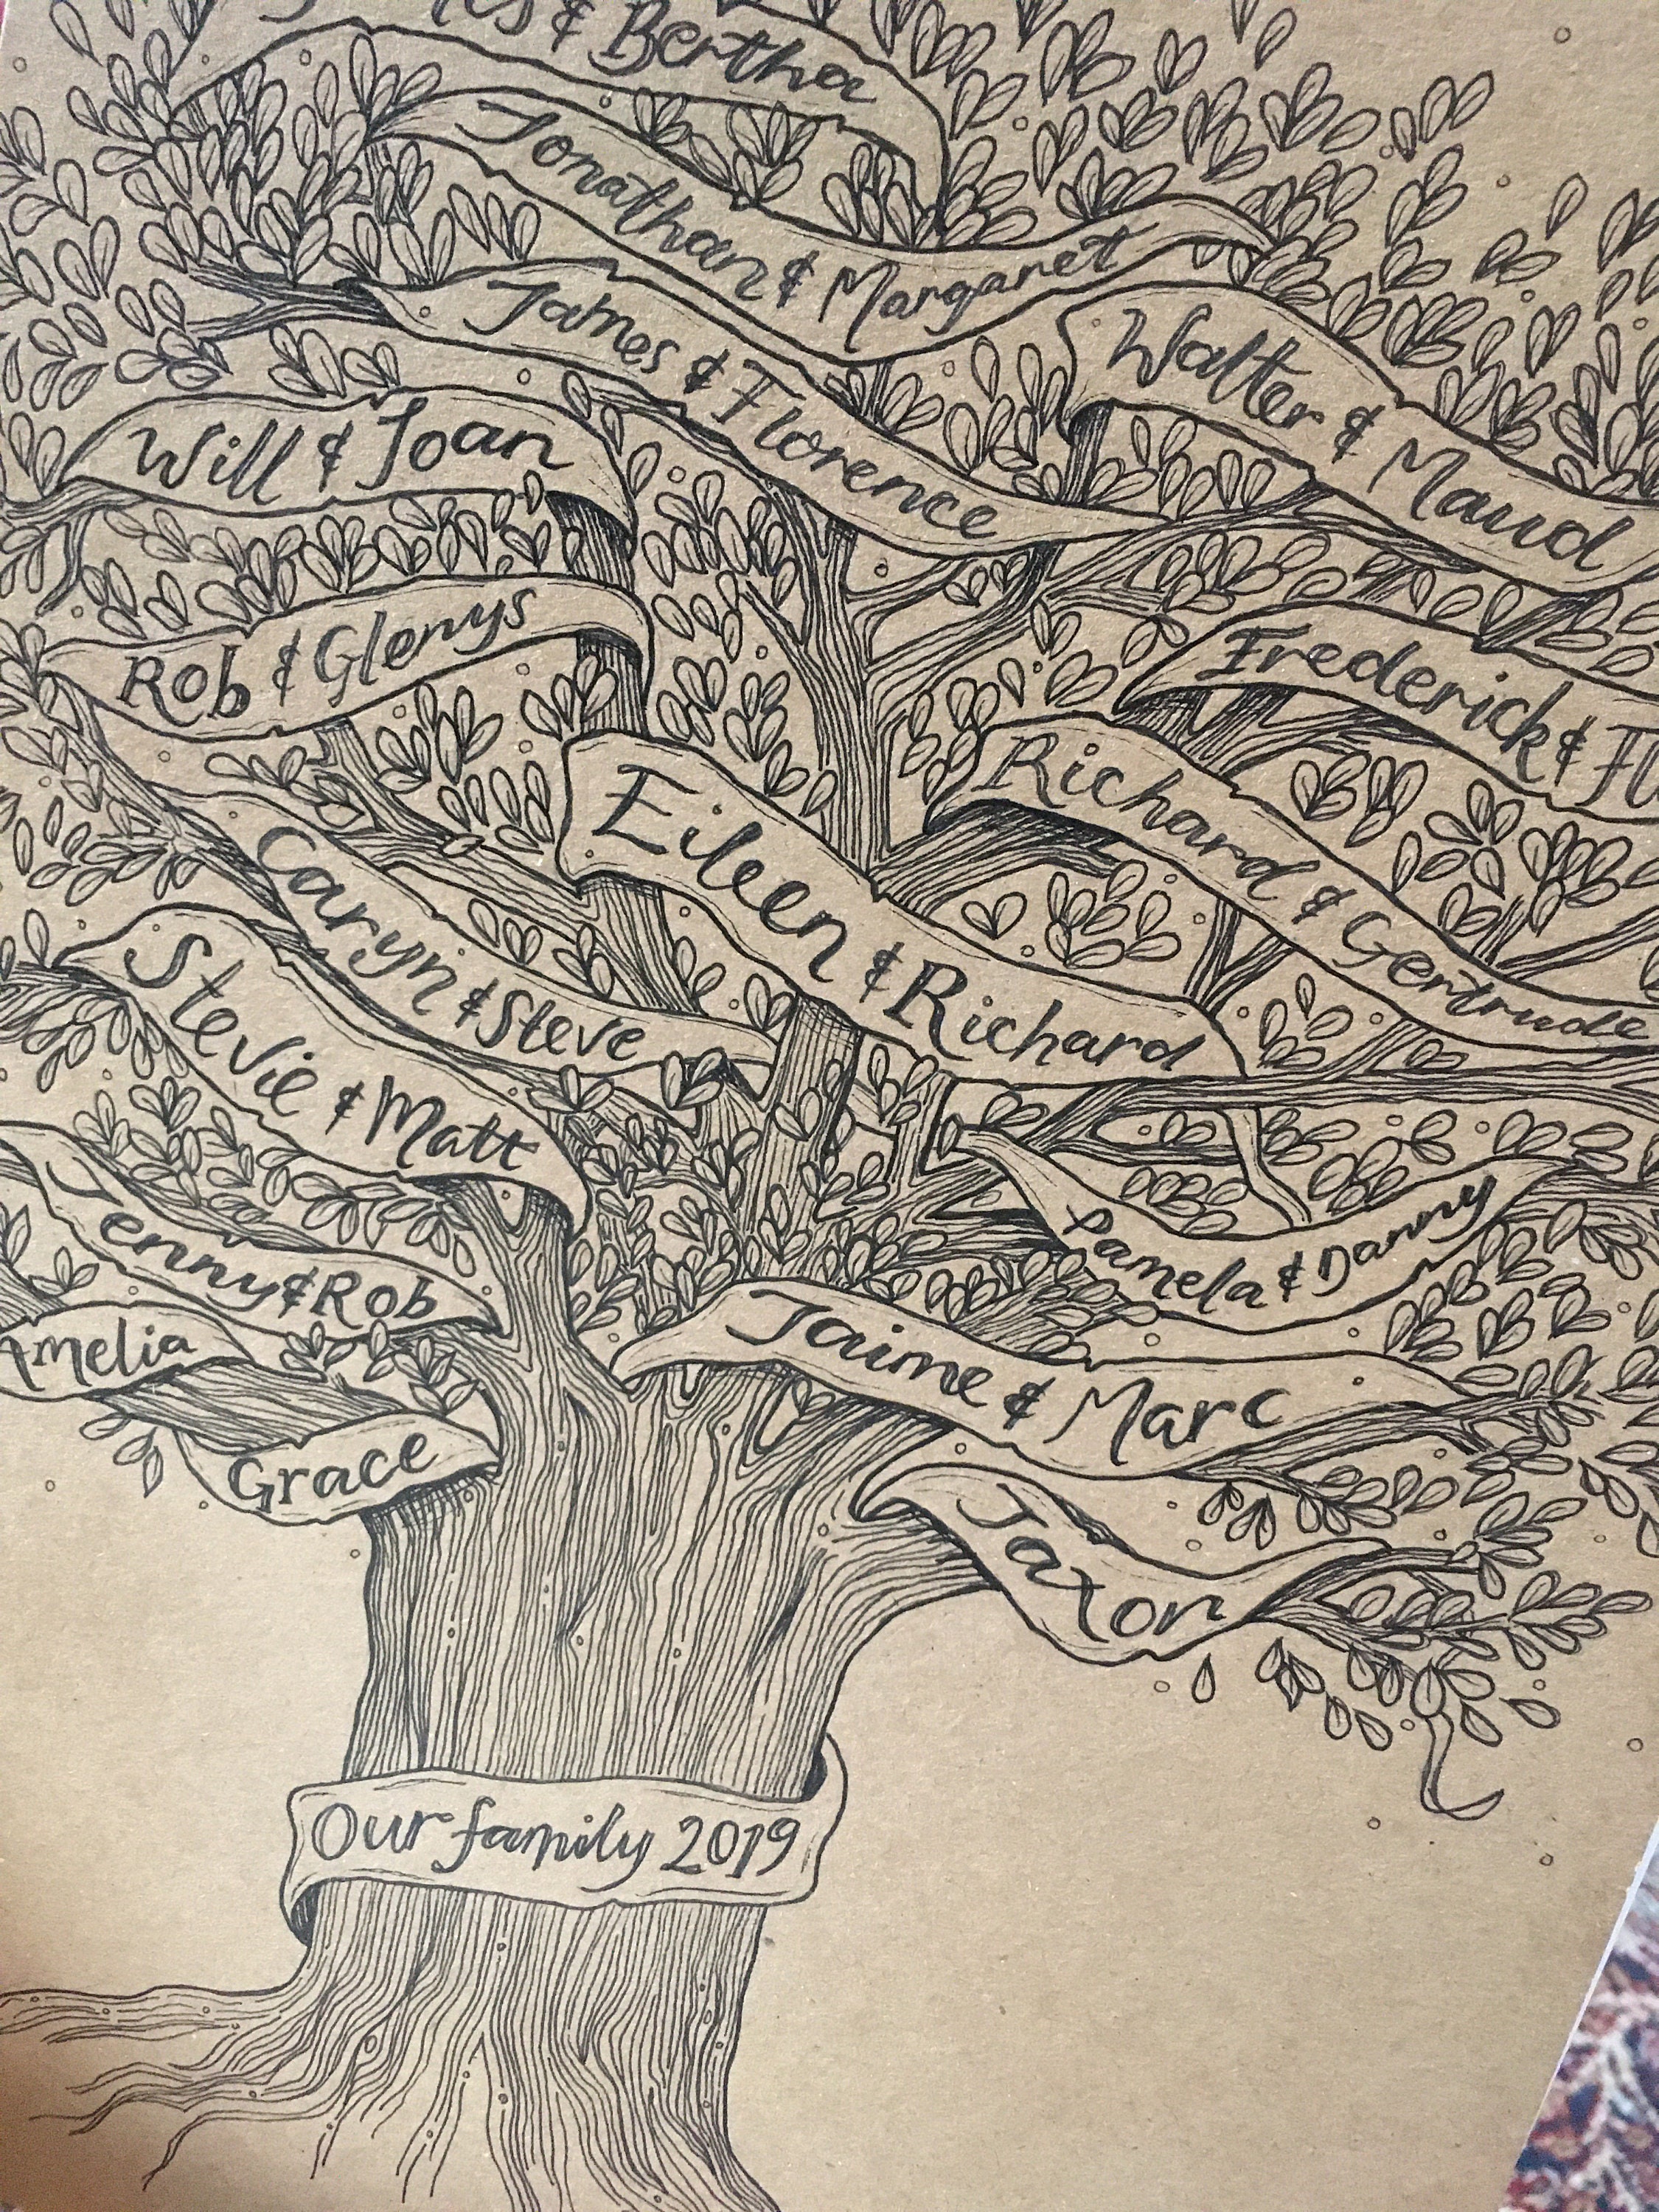 & Bertha
Jonathan & Margaret
James & Florence
Walter & Maud
Will & Joan
Rob & Glenys
Frederick &
Eileen & Richard
Richard & Gertrude
Caryn & Steve
Stevie & Matt
Pamela & Danny
Jenny & Rob
Amelia
Jaime & Marc
Grace
Jaxon
Our family 2019